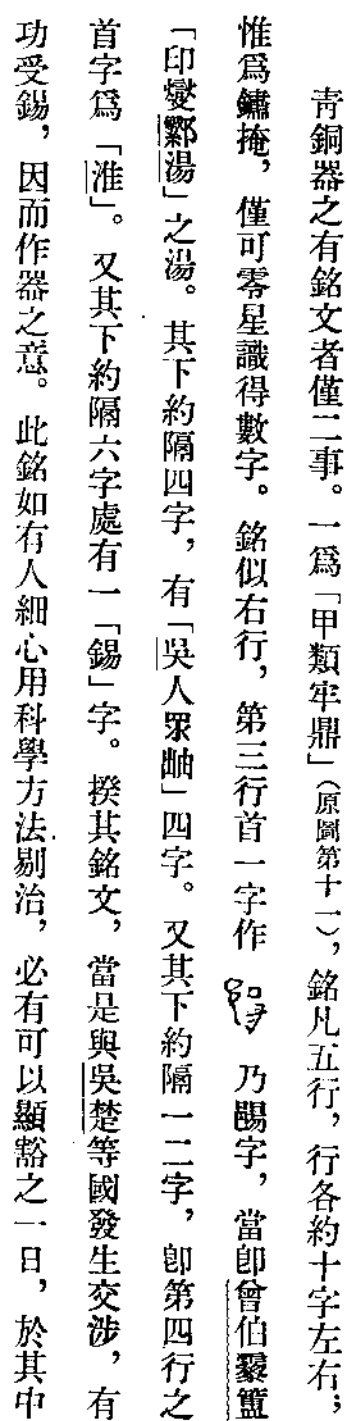 青銅器之有銘文者僅二事。一爲「甲類牢鼎」(原圖第十一),銘凡五行,行各約十字左右;
惟爲鏽掩,僅可零星識得數字。銘似右行,第三行首一字作 乃鍚字,當卽曾伯霥簠
「印燮鄡湯」之湯。其下約隔四字,有「吳人眾」四字。又其下約隔一二字,卽第四行之
首字爲「淮」。又其下約隔六字處有一「錫」字。揆其銘文,當是與吳楚等國發生交涉,有
功受錫,因而作器之意。此銘如有人細心用科學方法剔治,必有可以顯豁之一日,於其中